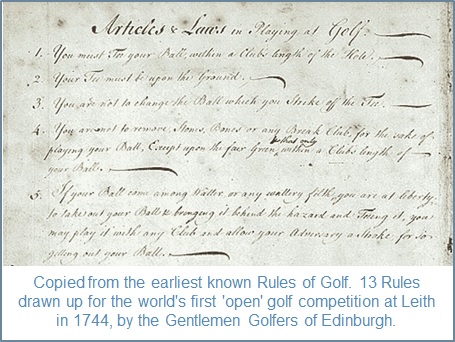 Articles & Laws in Playing at Golf.
1. You must Tee your Ball, within a Club's length of the Hole.
2 Your Tee must be upon the Ground.
3. You are not to change the Ball which you Stroke off the Tee.
4. You are not to remove, Stones, Bones or any Break Club, for the sake of
playing your Ball, Except upon the fair Green, & that only within a Club's length of
your Ball.
5. If your Ball come among Watter, or any wattery filth, you are at liberty
to take out your Ball & bringing it behind the hazard and Teeing it, you
may play it with any Club and allow your Adversary a Stroke, for so
getting out your Ball.
Copied from the earliest known Rules of Golf. 13 Rules
drawn up for the world's first 'open' golf competition at Leith
in 1744, by the Gentlemen Golfers of Edinburgh.